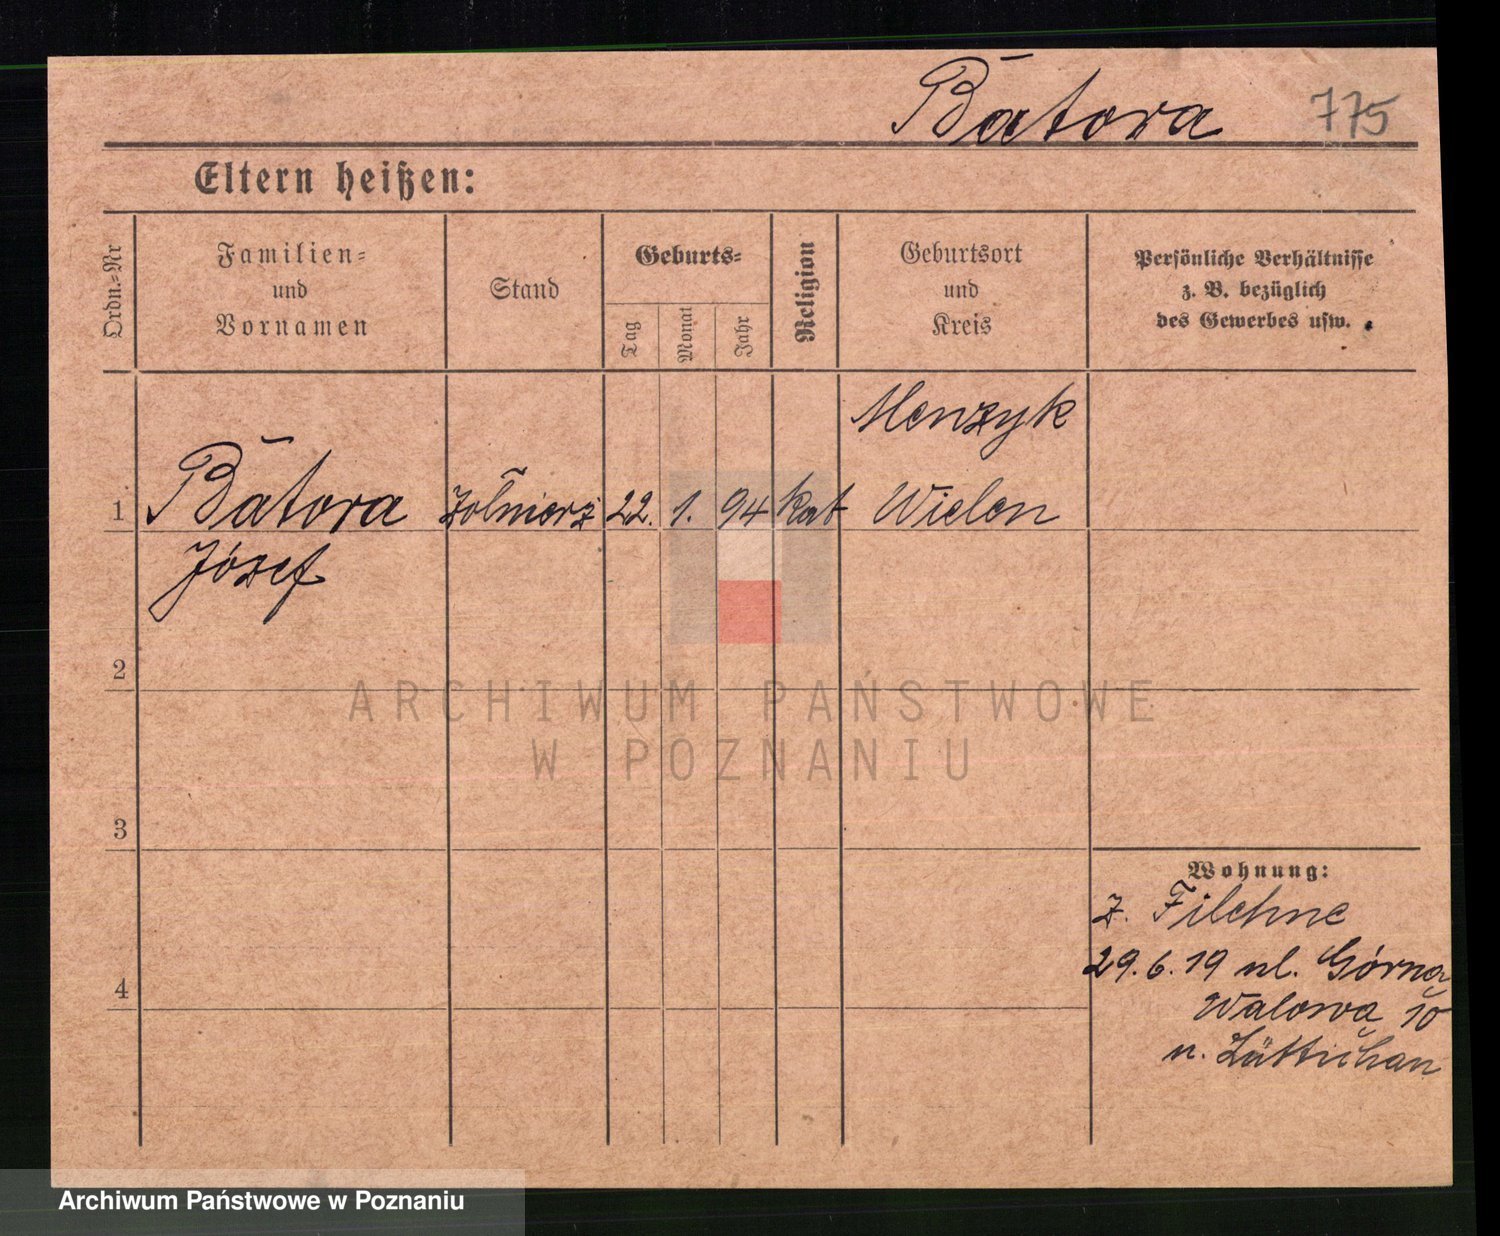 Bátora 775
Eltern heißen:
Ordn.-Nr
Familien-
und
Vornamen
Stand
Geburts-
Tag
Monat
Jahr
Religion
Geburtsort
und
Kreis
Persönliche Verhältnisse
z. B. bezüglich
des Gewerbes usw.
Menzyk
1 Bátora żołnierz 22. 1. 94 kat Wielen
Józef
2
ARCHIWUM PAŃSTWOWE
W POZNANIU
3
Wohnung:
z. Filehne
29.6.19 ul. Górna
4
Walowa 10
n.
Archiwum Państwowe w Poznaniu